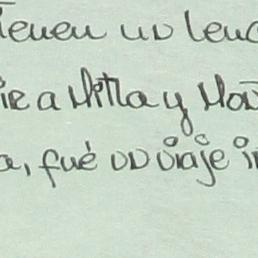 Tienen un leng
ie a Mitla y Mon
a, fué un viaje in